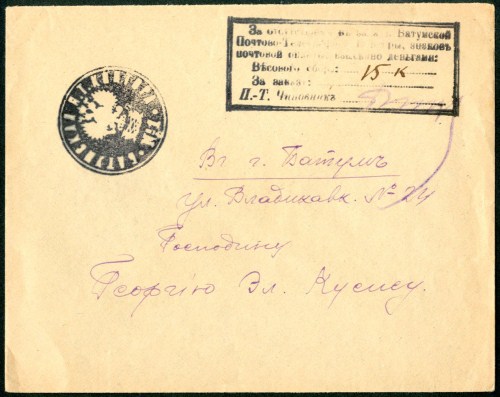 За отсутствіемъ въ Батумской
Почтово-Тел. Конторы, знаковъ
почтовой оплаты взыскано деньгами:
Вѣсового сбора: 15-к
За заказъ:
П.-Т. Чиновникъ
Въ г. Батумъ
ул. Владикавк. № 24
Господину
Георгію Эл. Кусису.